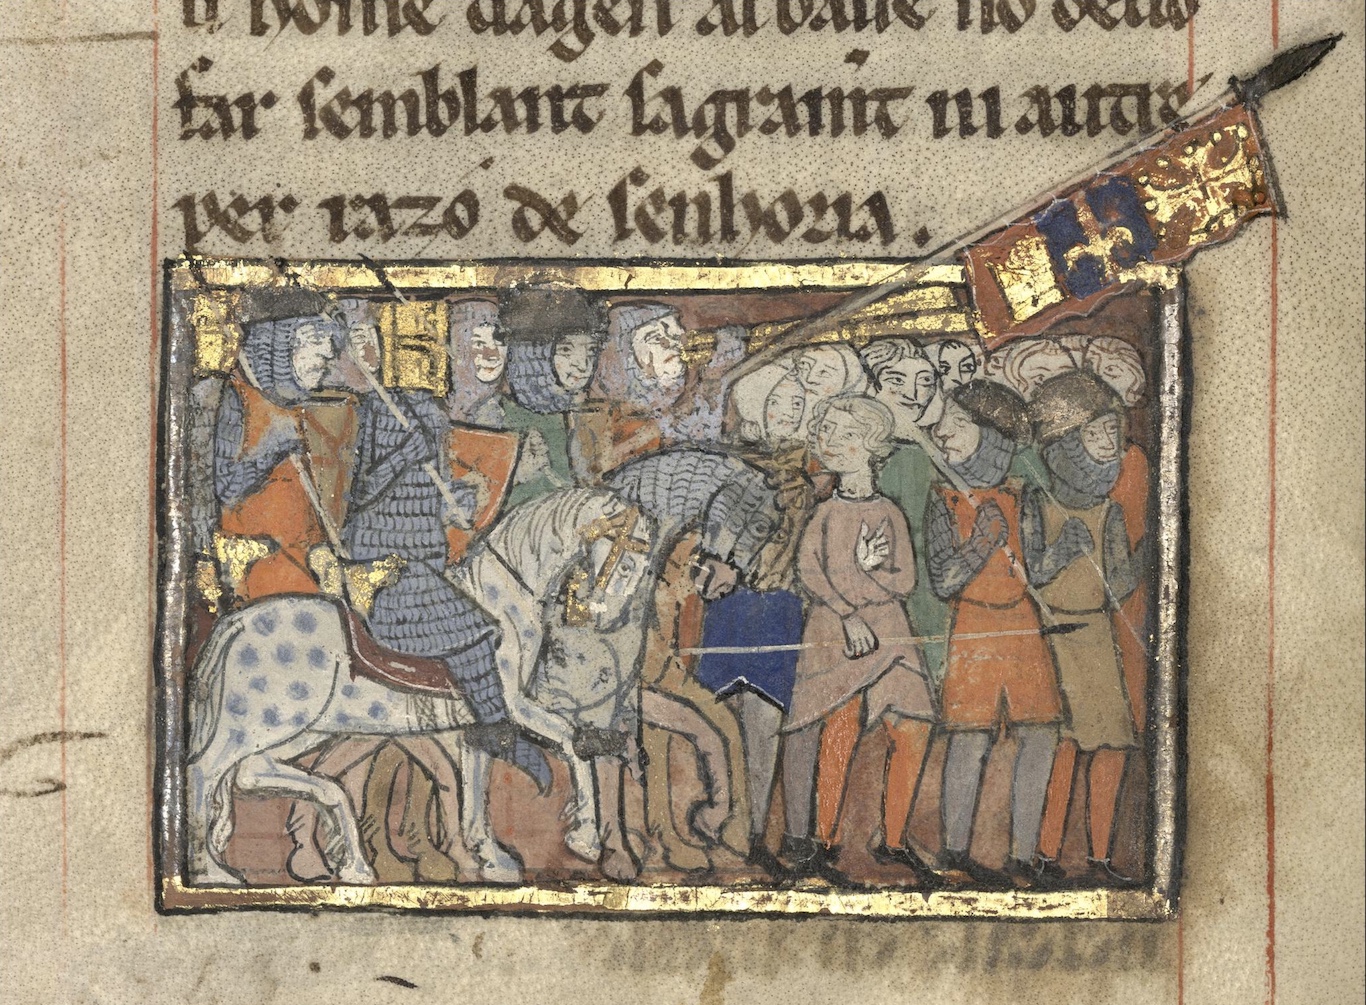 home dagen al baile no deuo
far semblant sagramt ni autre
per razo de senhoria.